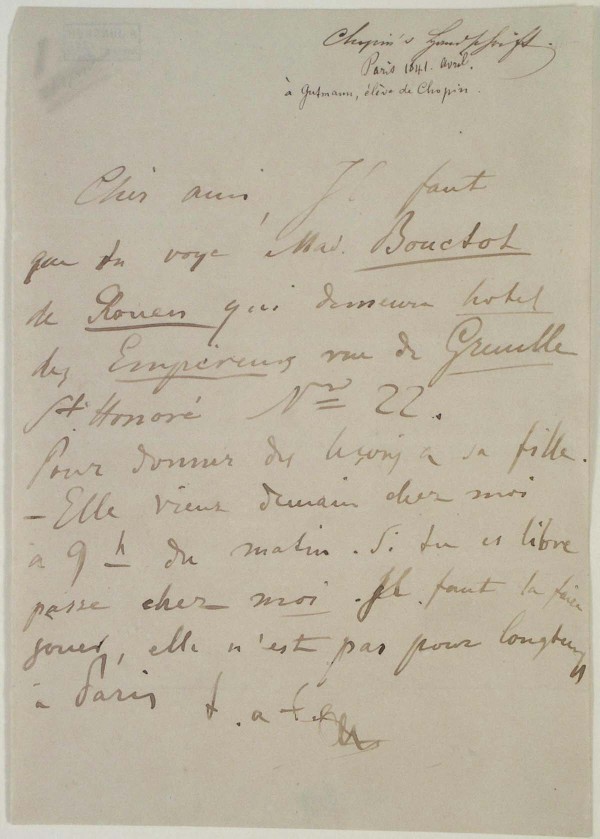 Chopin's Handschrift.
Paris 1841. Avril.
à Gutmann, élève de Chopin.
Cher ami, Il faut
que tu voye Mad. Bouctot
de Rouen qui demeure hotel
des Empereurs rue de Grenelle
St. Honoré Nro 22.
Pour donner des leçons a sa fille.
- Elle vient demain chez moi
à 9 h du matin. Si tu es libre
passe chez moi. Il faut la faire
jouer, elle n'est pas pour longtemps
à Paris